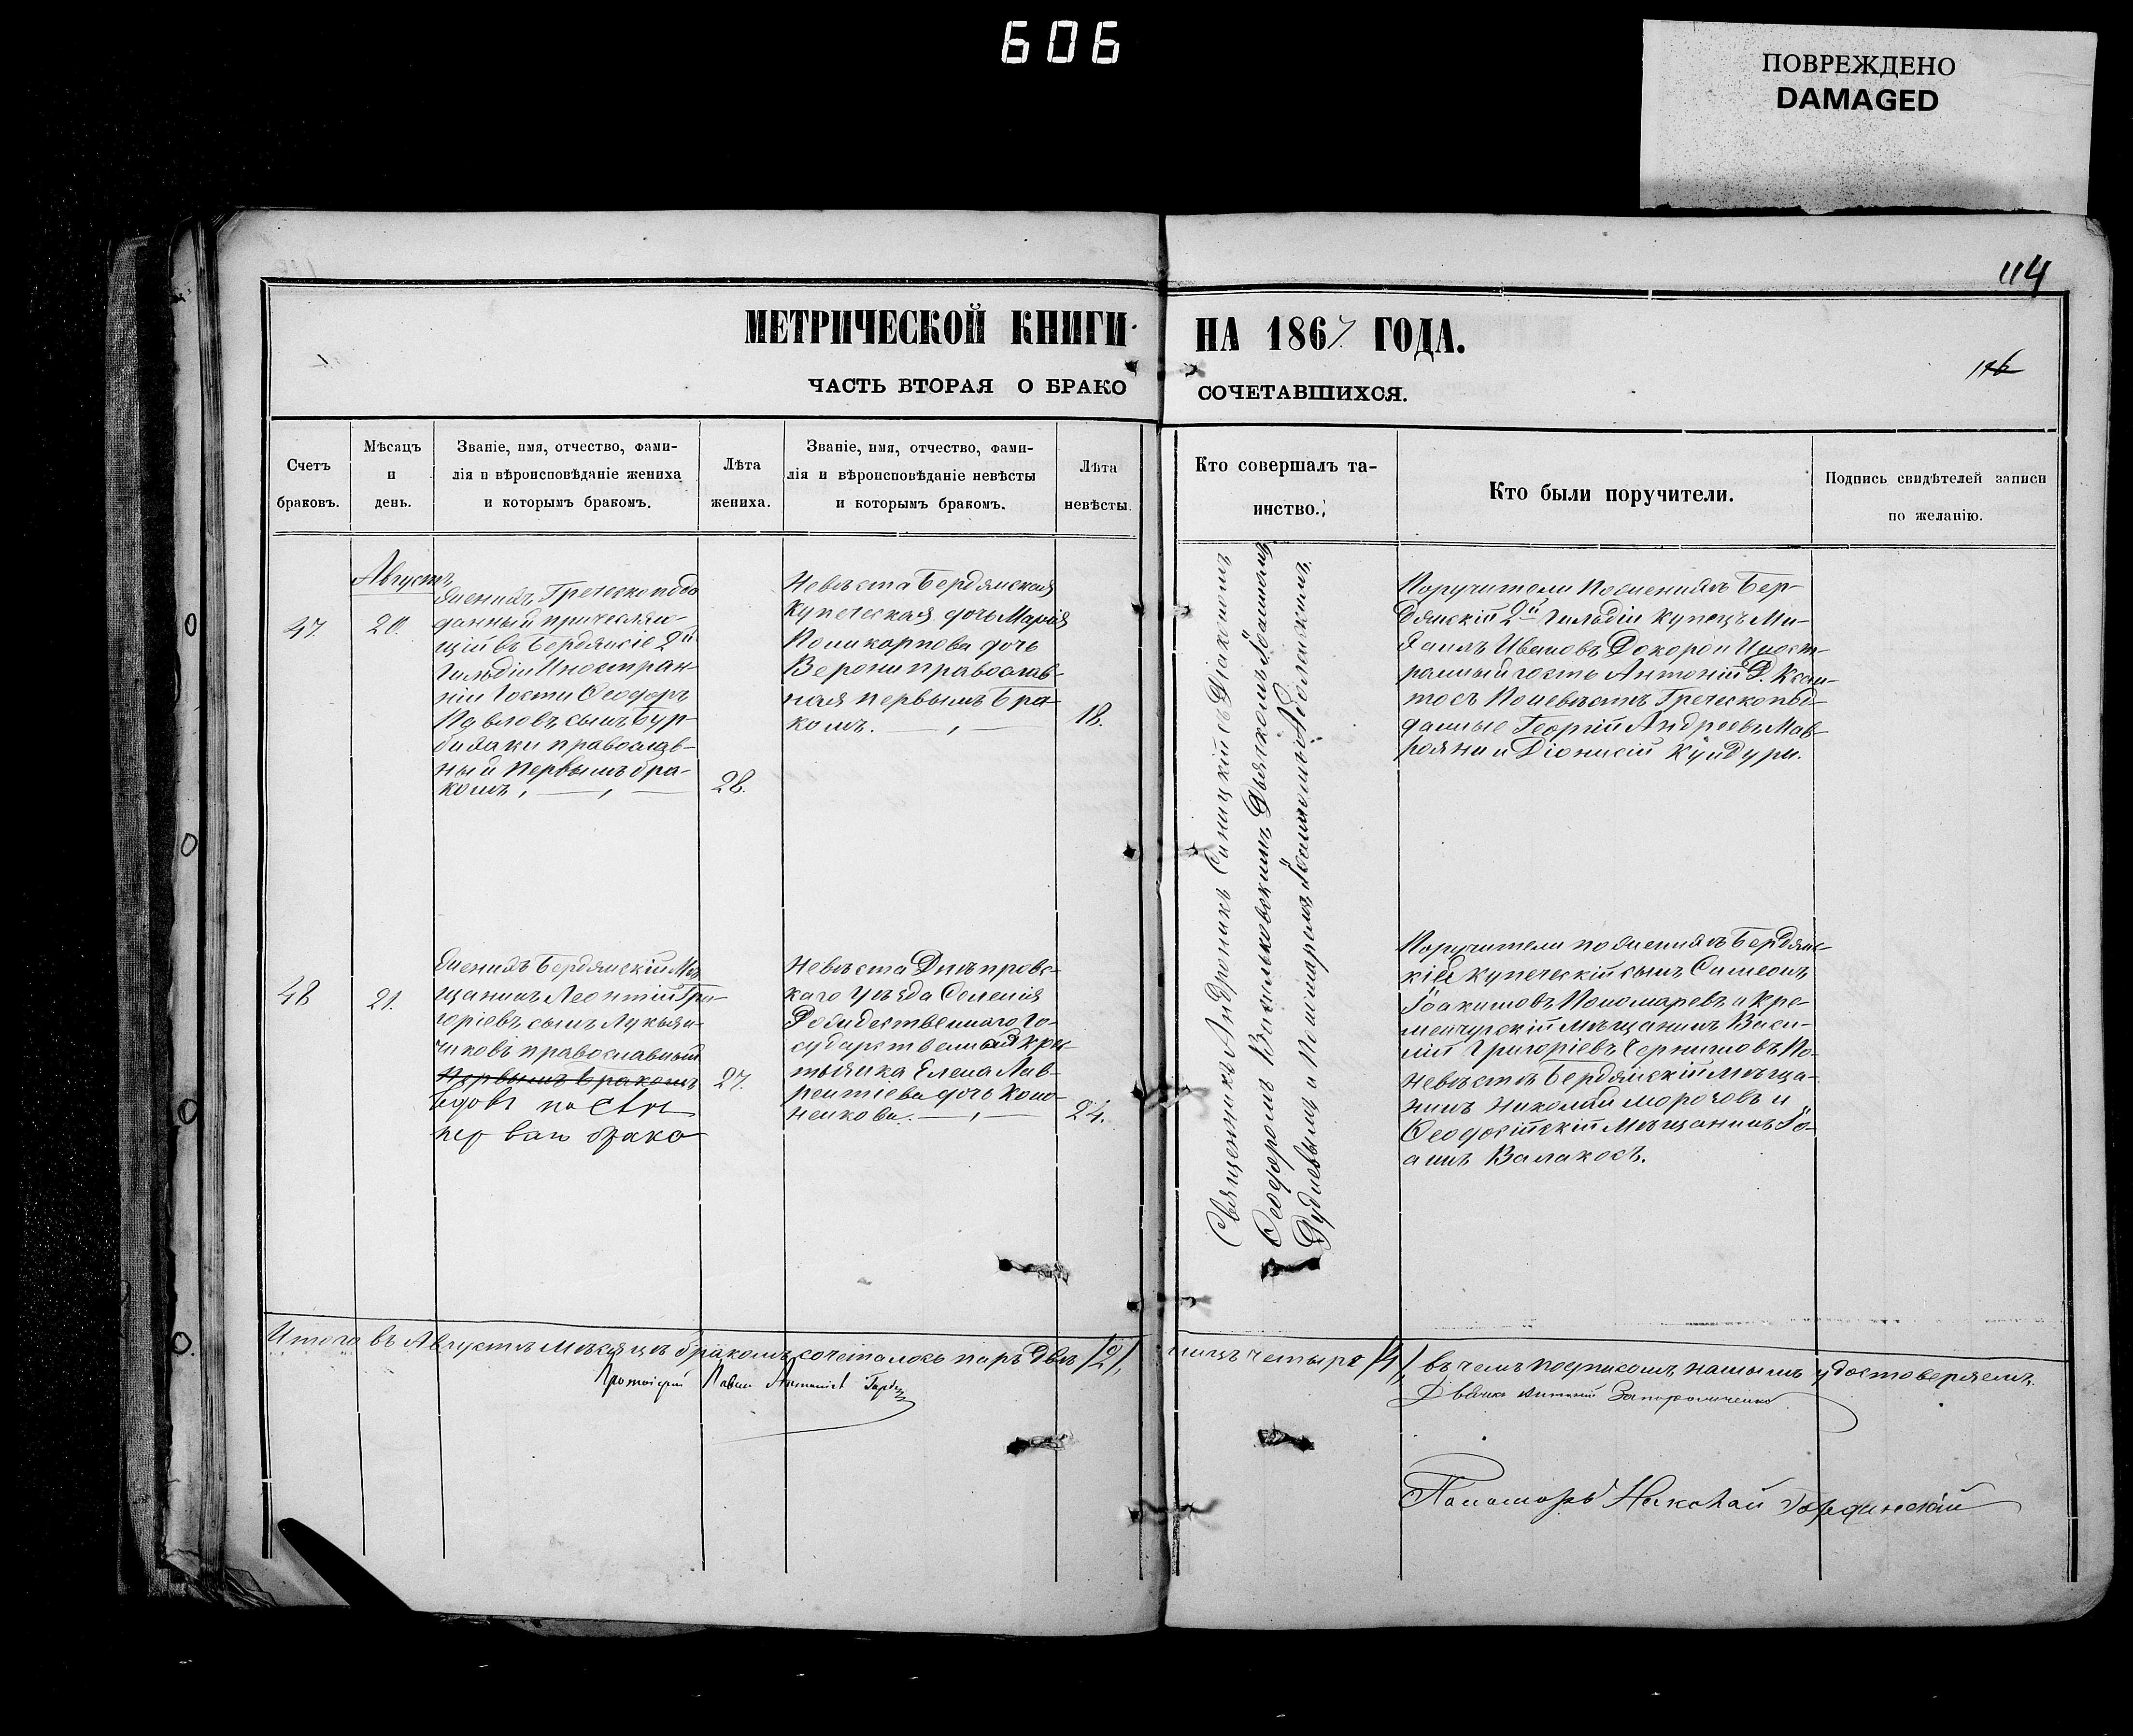 606
ПОВРЕЖДЕНО
DAMAGED
114
МЕТРИЧЕСКОЙ КНИГИ НА 1867 ГОДА.
116
ЧАСТЬ ВТОРАЯ О БРАКО СОЧЕТАВШИХСЯ.
Счетъ
браковъ.
Мѣсяцъ
и
день.
Званіе, имя, отчество, фами-
лія и вѣроисповѣданіе жениха
и которымъ бракомъ.
Лѣта
жениха.
Званіе, имя, отчество, фами-
лія и вѣроисповѣданіе невѣсты
и которымъ бракомъ.
Лѣта
невѣсты.
Кто совершалъ та-
инство.
Кто были поручители.
Подпись свидѣтелей записи
по желанію.
Августъ
47.
20.
Женихъ Греческоподо
данный причисляю-
щій въ Бердянскіе 2й
Гильдіи Иностран-
ніи Гости Ѳеодоръ
Павловъ сынъ
православ-
ный первымъ бра-
комъ,
28.
Невѣста Бердянская
купеческая дочь Марія
Поликарпова дочь
Верони православ-
ная первымъ бра-
комъ.
18.
Священникъ Андроникъ Синицкій съ Діакономъ
Ѳеодоромъ Васильковскимъ Дьячкомъ Іоанномъ
и Пономаремъ Іоанномъ
Поручители По женихѣ Бер-
дянскій 2й Гильдіи купецъ Ми-
хаилъ Ивановъ Иност-
ранный гость Антоній Д. Ксан-
тосъ По невѣстѣ Греческопод-
данные Георгій Андреевъ Мав-
рояни и Діонисій Кундури.
48
21.
Женихъ Бердянскій Мѣ-
щанинъ Леонтій Гри-
горіевъ сынъ Лукьян-
чиковъ православный
первымъ бракомъ
вдовъ по
пер вам брако
27.
Невѣста Днѣпровс-
каго Уѣзда Селенія
Рождественнаго Го-
сударственная крес-
тьянка Елена Лав-
рентіева дочь Коно-
ненкова.
24.
Поручители по женихѣ Бердянс-
кіе купеческій сынъ Симеонъ
Іоакимовъ Пономаревъ и Кре-
менчугскій Мѣщанинъ Васи-
лій Григоріевъ Черниловъ По
невѣстѣ Бердянскій Мѣща-
нинъ Николай Морозовъ и
Ѳеодосійскій Мѣщанинъ Іо-
аннъ Валакосъ.
Итого въ Августѣ Мѣсяцѣ бракомъ сочеталось паръ двѣ /2/, лицъ четыре /4/, въ чемъ подписомъ нашимъ удостовѣряемъ.
Протоіерей Павелъ
Дьячекъ Запорожченко
Пономарь Николай Гординскій